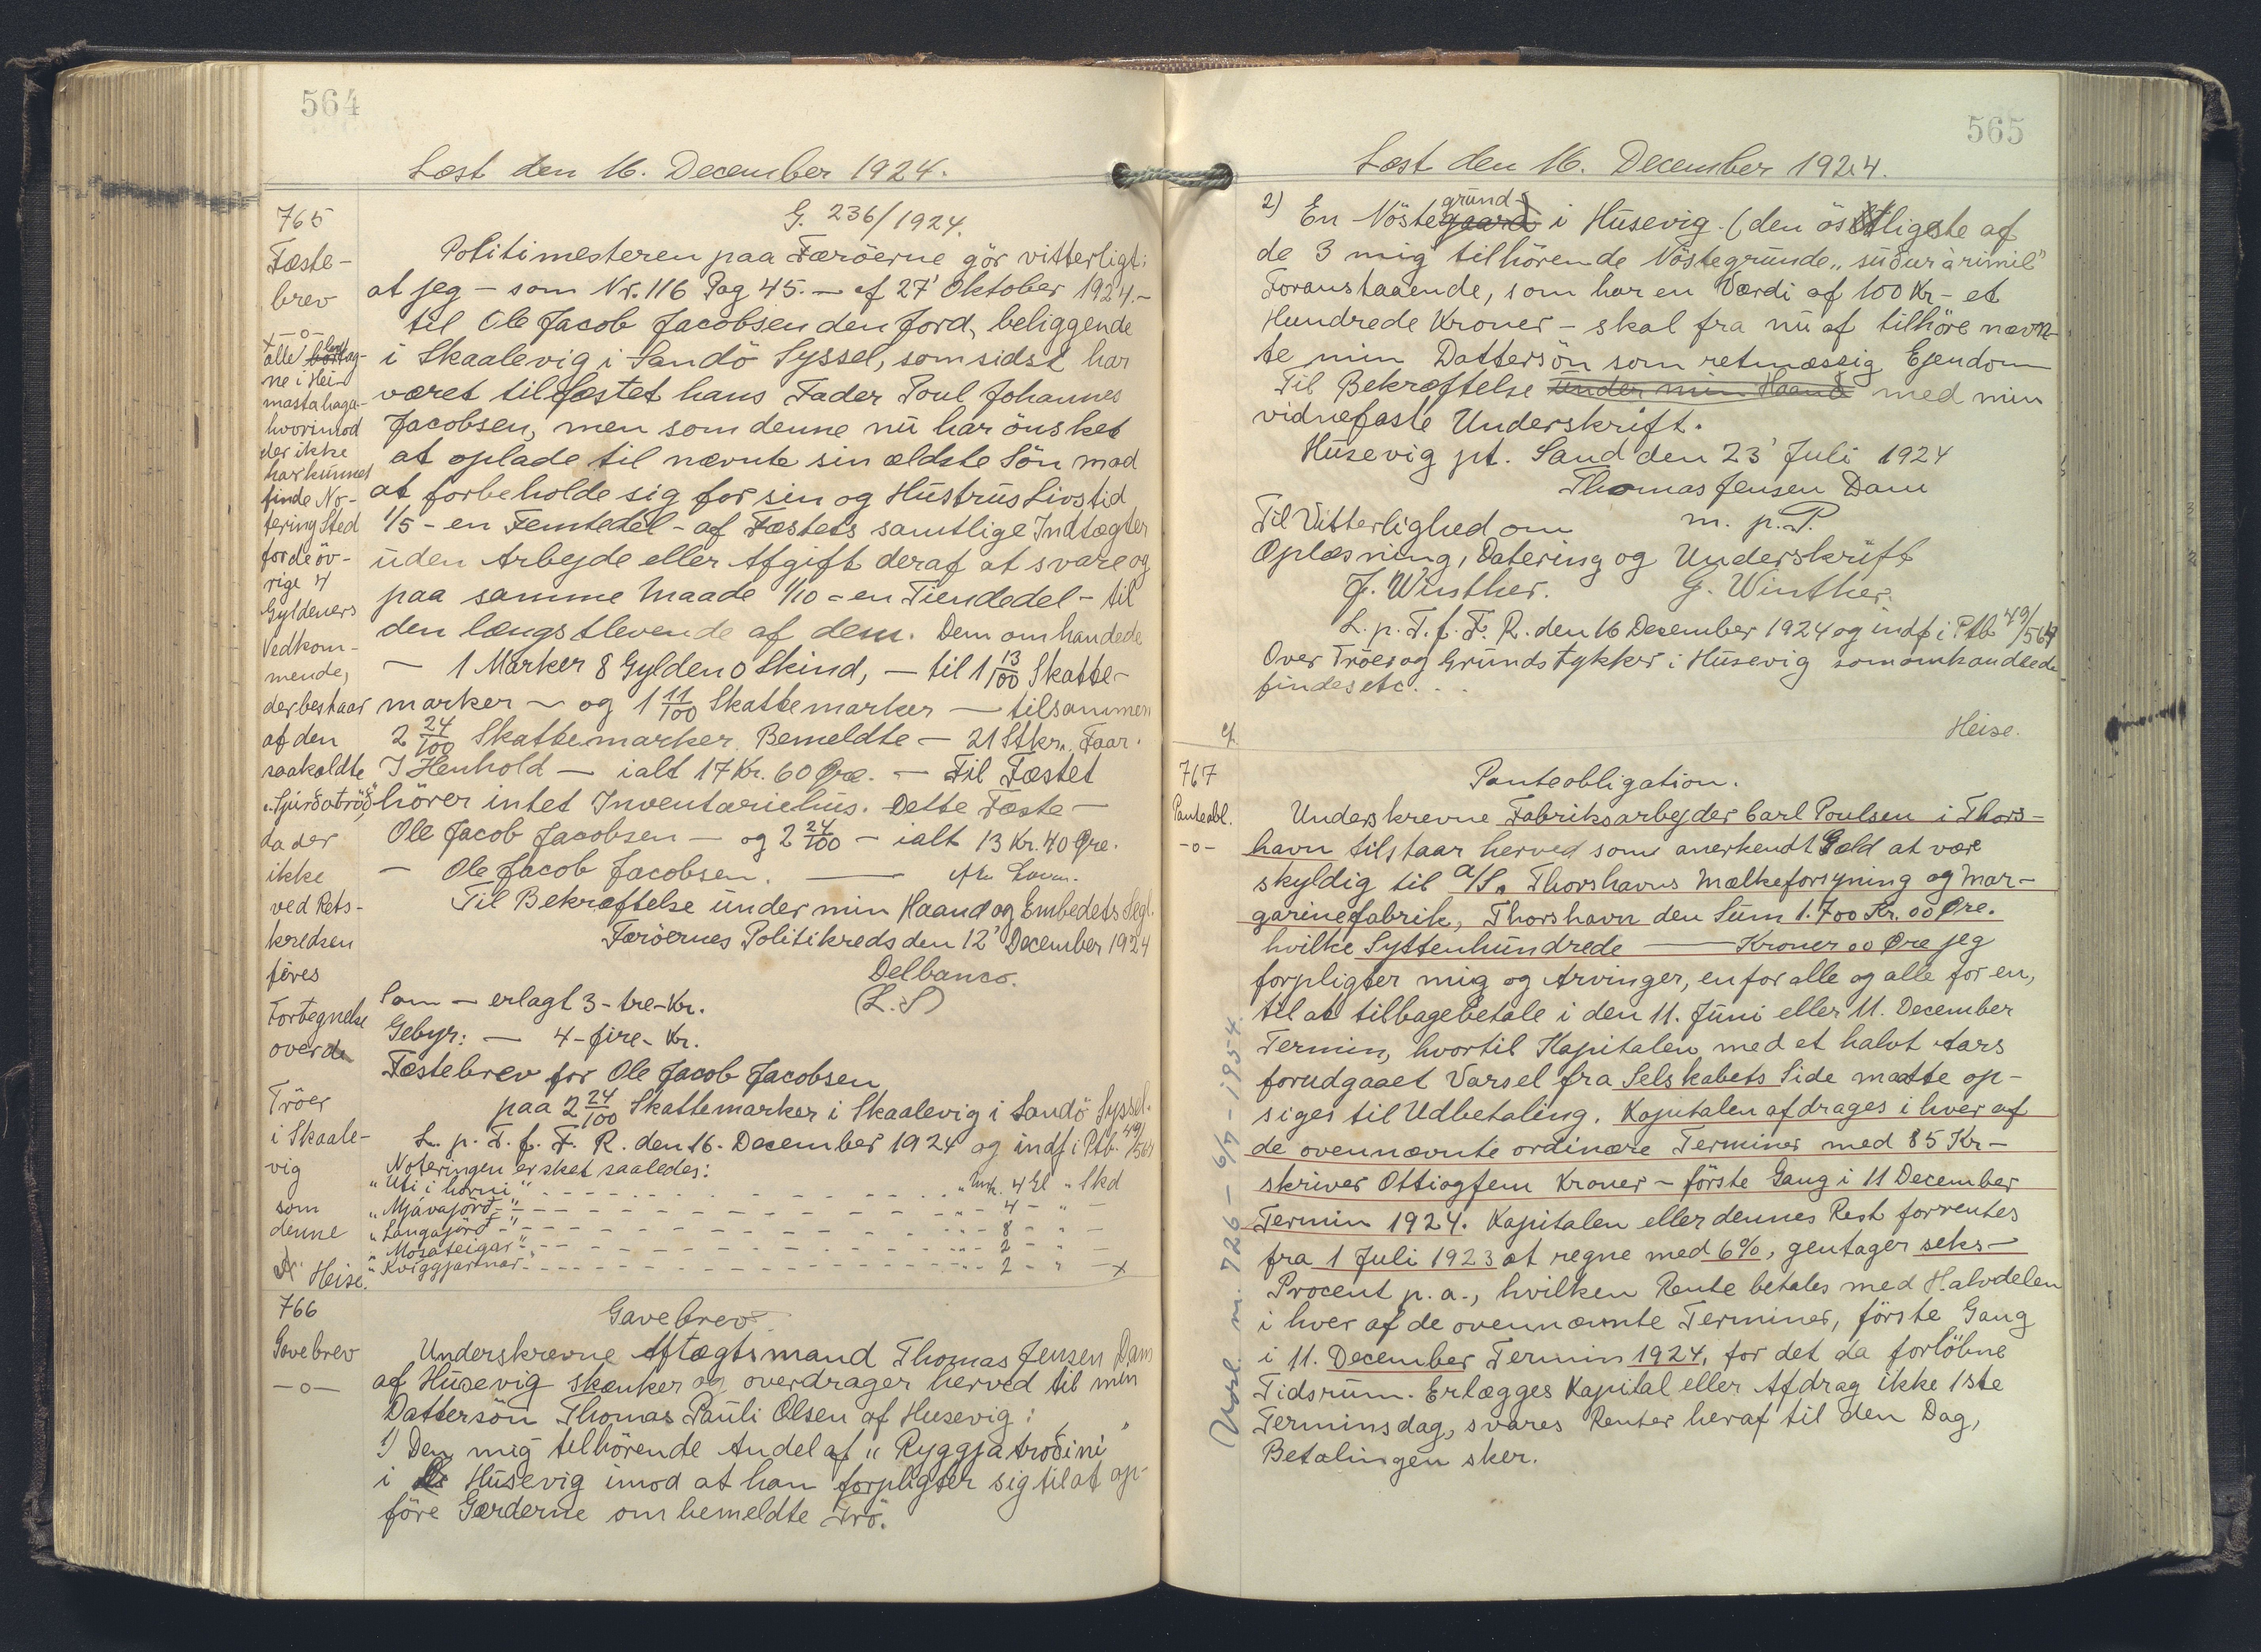 564
Læst den 16. December 1924.
765
Fæste-
brev
-o-
G. 236/1924.
Politimesteren paa Færöerne gör vitterligt:
at jeg - som Nr. 116 Pag 45. - af 27' Oktober 1924. -
til Ole Jacob Jacobsen den Jord, beliggende
i Skaalevig i Sandö Syssel, som sidst har
været tilfæstet hans Fader Poul Johannes
Jacobsen, men som denne nu har önsket
at oplade til nævnte sin ældste Sön mod
at forbeholde sig for sin og Hustrus Livstid
1/5 - en Femtedel - af Fæstets samtlige Indtægter
uden Arbejde eller Afgift deraf at svare og
paa samme Maade 1/10 - en Tiendedel - til
den længstlevende af dem. Dem omhandede
- 1 Marker 8 Gylden 0 Skind, - til 1 13/100 Skatte-
marker - og 1 11/100 Skattemarker - tilsammen
2 24/100 Skattemarker. Bemeldte - 21 Stkr. Faar.
I Henhold - ialt 17 Kr. 60 Øre. - Til Fæstet
hörer intet Inventariehus. Dette Fæste -
Ole Jacob Jacobsen - og 2 24/100 - ialt 13 Kr. 40 Øre.
- Ole Jacob Jacobsen. - efter Loven.
Til Bekræftelse under min Haand og Embedets Segl.
Færöernes Politikreds den 12' December 1924
Delbanco.
(L.S)
Som - erlagt 3 - tre - Kr.
Gebyr: - 4 - fire - Kr.
Fæstebrev for Ole Jacob Jacobsen
paa 2 24/100 Skattemarker i Skaalevig i Sandö Syssel.
L. p. T. f. F. R. den 16. December 1924 og indf i Ptb. 49/564
Noteringen er sket saaledes:
"Uti i horni" - - - " Mrk. 4 Gl " Skd
"Mjávajörd" - - - " - 4 - " -
"Langajörd" - - - " - 8 - " -
"Mosateigar" - - - " - 2 - " -
"Kviggjartnar" - - - " - 2 - " - x
x
alle
ne i Hei
masta haga-
hvorimod
der ikke
har kunnet
finde No-
tering Sted
for de öv-
rige 4
Gyldeners
Vedkom-
mende,
der bestaar
af den
saakaldte
"Sjúrðatröð",
da der
ikke
ved Rets-
kredsen
föres
Fortegnelse
over de
Tröer
i Skaale-
vig
som
denne
Heise.
766
Gavebrev
-o-
Gavebrev.
Underskrevne Aftægtsmand Thomas Jensen Dam
af Húsevig skænker og overdrager herved til min
Dattersön Thomas Pauli Olsen af Husevig:
1) Den mig tilhörende Andel af "Ryggjatroðini"
i Húsevig imod at han forpligter sig til at op-
före Gærderne om bemeldte Trö.
565
Læst den 16. December 1924.
2) En Nöstegrund i Húsevig. (den östligste af
de 3 mig tilhörende Nöstegrunde "suður á rimil"
Foranstaaende, som har en Værdi af 100 Kr - et
Hundrede Kroner - skal fra nu af tilhöre nævn-
te min Dattersön som retmæssig Ejendom
Til Bekræftelse under min Haand med min
vidnefaste Underskrift.
Húsevig pt. Sand den 23' Juli 1924
Thomas Jensen Dam
m. p. P.
Til Vitterlighed om
Oplæsning, Datering og Underskrift
J. Winther. G. Winther.
L. p. T. f. F. R. den 16 December 1924 og indf i Ptb 49/564
Over Tröer og Grundstykker i Húsevig som omhandlede
findes etc. . .
Heise.
767
Panteobl.
-o-
Panteobligation.
Underskrevne Fabriksarbejder Carl Poulsen i Thors-
havn tilstaar herved som anerkendt Gæld at være
skyldig til A/S. Thorshavns Mælkeforsyning og Mar-
garinefabrik, Thorshavn den Sum 1.700 Kr. 00 Øre.
hvilke Syttenhundrede - Kroner 00 Øre jeg
forpligter mig og Arvinger, en for alle og alle for en,
til at tilbagebetale i den 11. Juni eller 11. December
Termin, hvortil Kapitalen med et halvt Aars
forudgaaet Varsel fra Selskabets Side maatte op-
siges til Udbetaling. Kapitalen afdrages i hver af
de ovennævnte ordinære Terminer med 85 Kr -
skriver Ottiogfem Kroner - förste Gang i 11 December
Termin 1924. Kapitalen eller dennes Rest forrentes
fra 1 Juli 1923 at regne med 6%, gentager seks -
Procent p. a., hvilken Rente betales med Halvdelen
i hver af de ovennævnte Terminer, förste Gang
i 11. December Termin 1924, for det da forlöbne
Tidsrum. Erlægges Kapital eller Afdrag ikke 1ste
Terminsdag, svares Renter heraf til den Dag,
Betalingen sker.
m. 726 - 6/7 - 1954.